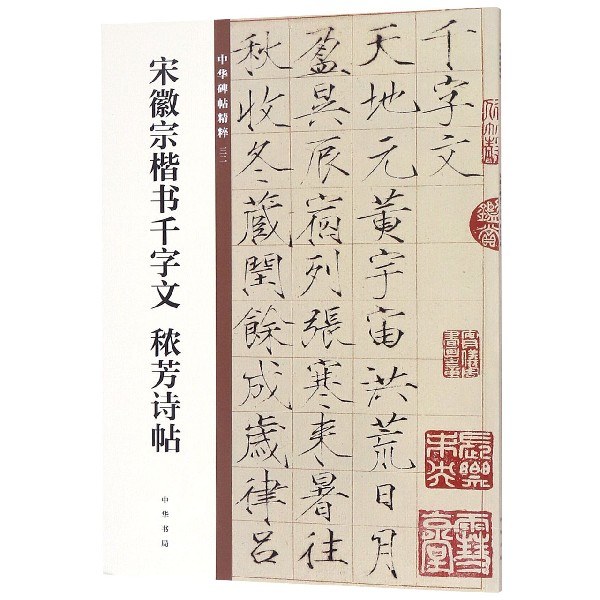 宋徽宗楷书千字文 秾芳诗帖
中华书局
中华碑帖精粹 三二
千字文
天地元黃宇宙洪荒日月
盈昃辰宿列張寒来暑往
秋收冬藏閏餘成歲律吕
鑑賞